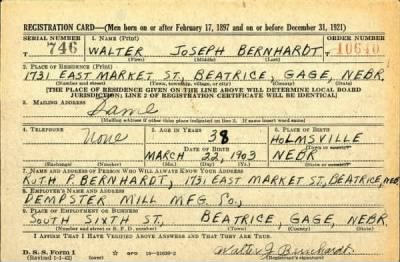 REGISTRATION CARD—(Men born on or after February 17, 1897 and on or before December 31, 1921)
SERIAL NUMBER 1. NAME (Print) ORDER NUMBER
T 746 WALTER JOSEPH BERNHARDT T 10640
(First) (Middle) (Last)
2. PLACE OF RESIDENCE (Print)
1731 EAST MARKET ST., BEATRICE, GAGE, NEBR.
(Number and street) (Town, township, village, or city) (County) (State)
[THE PLACE OF RESIDENCE GIVEN ON THE LINE ABOVE WILL DETERMINE LOCAL BOARD
JURISDICTION; LINE 2 OF REGISTRATION CERTIFICATE WILL BE IDENTICAL]
3. MAILING ADDRESS
Same
[Mailing address if other than place indicated on line 2. If same insert word same]
4. TELEPHONE 5. AGE IN YEARS 6. PLACE OF BIRTH
None 38 HOLMSVILLE
DATE OF BIRTH (Town or county)
MARCH 22, 1903 NEBR.
(Exchange) (Number) (Mo.) (Day) (Yr.) (State or country)
7. NAME AND ADDRESS OF PERSON WHO WILL ALWAYS KNOW YOUR ADDRESS
RUTH P. BERNHARDT, 1731 EAST MARKET ST., BEATRICE, NEBR.
8. EMPLOYER'S NAME AND ADDRESS
DEMPSTER MILL MFG. CO.,
9. PLACE OF EMPLOYMENT OR BUSINESS
SOUTH SIXTH ST., BEATRICE, GAGE, NEBR.
(Number and street or R. F. D. number) (Town) (County) (State)
I AFFIRM THAT I HAVE VERIFIED ABOVE ANSWERS AND THAT THEY ARE TRUE.
D. S. S. Form 1 Walter J Bernhardt
(Revised 1-1-42) (Over)